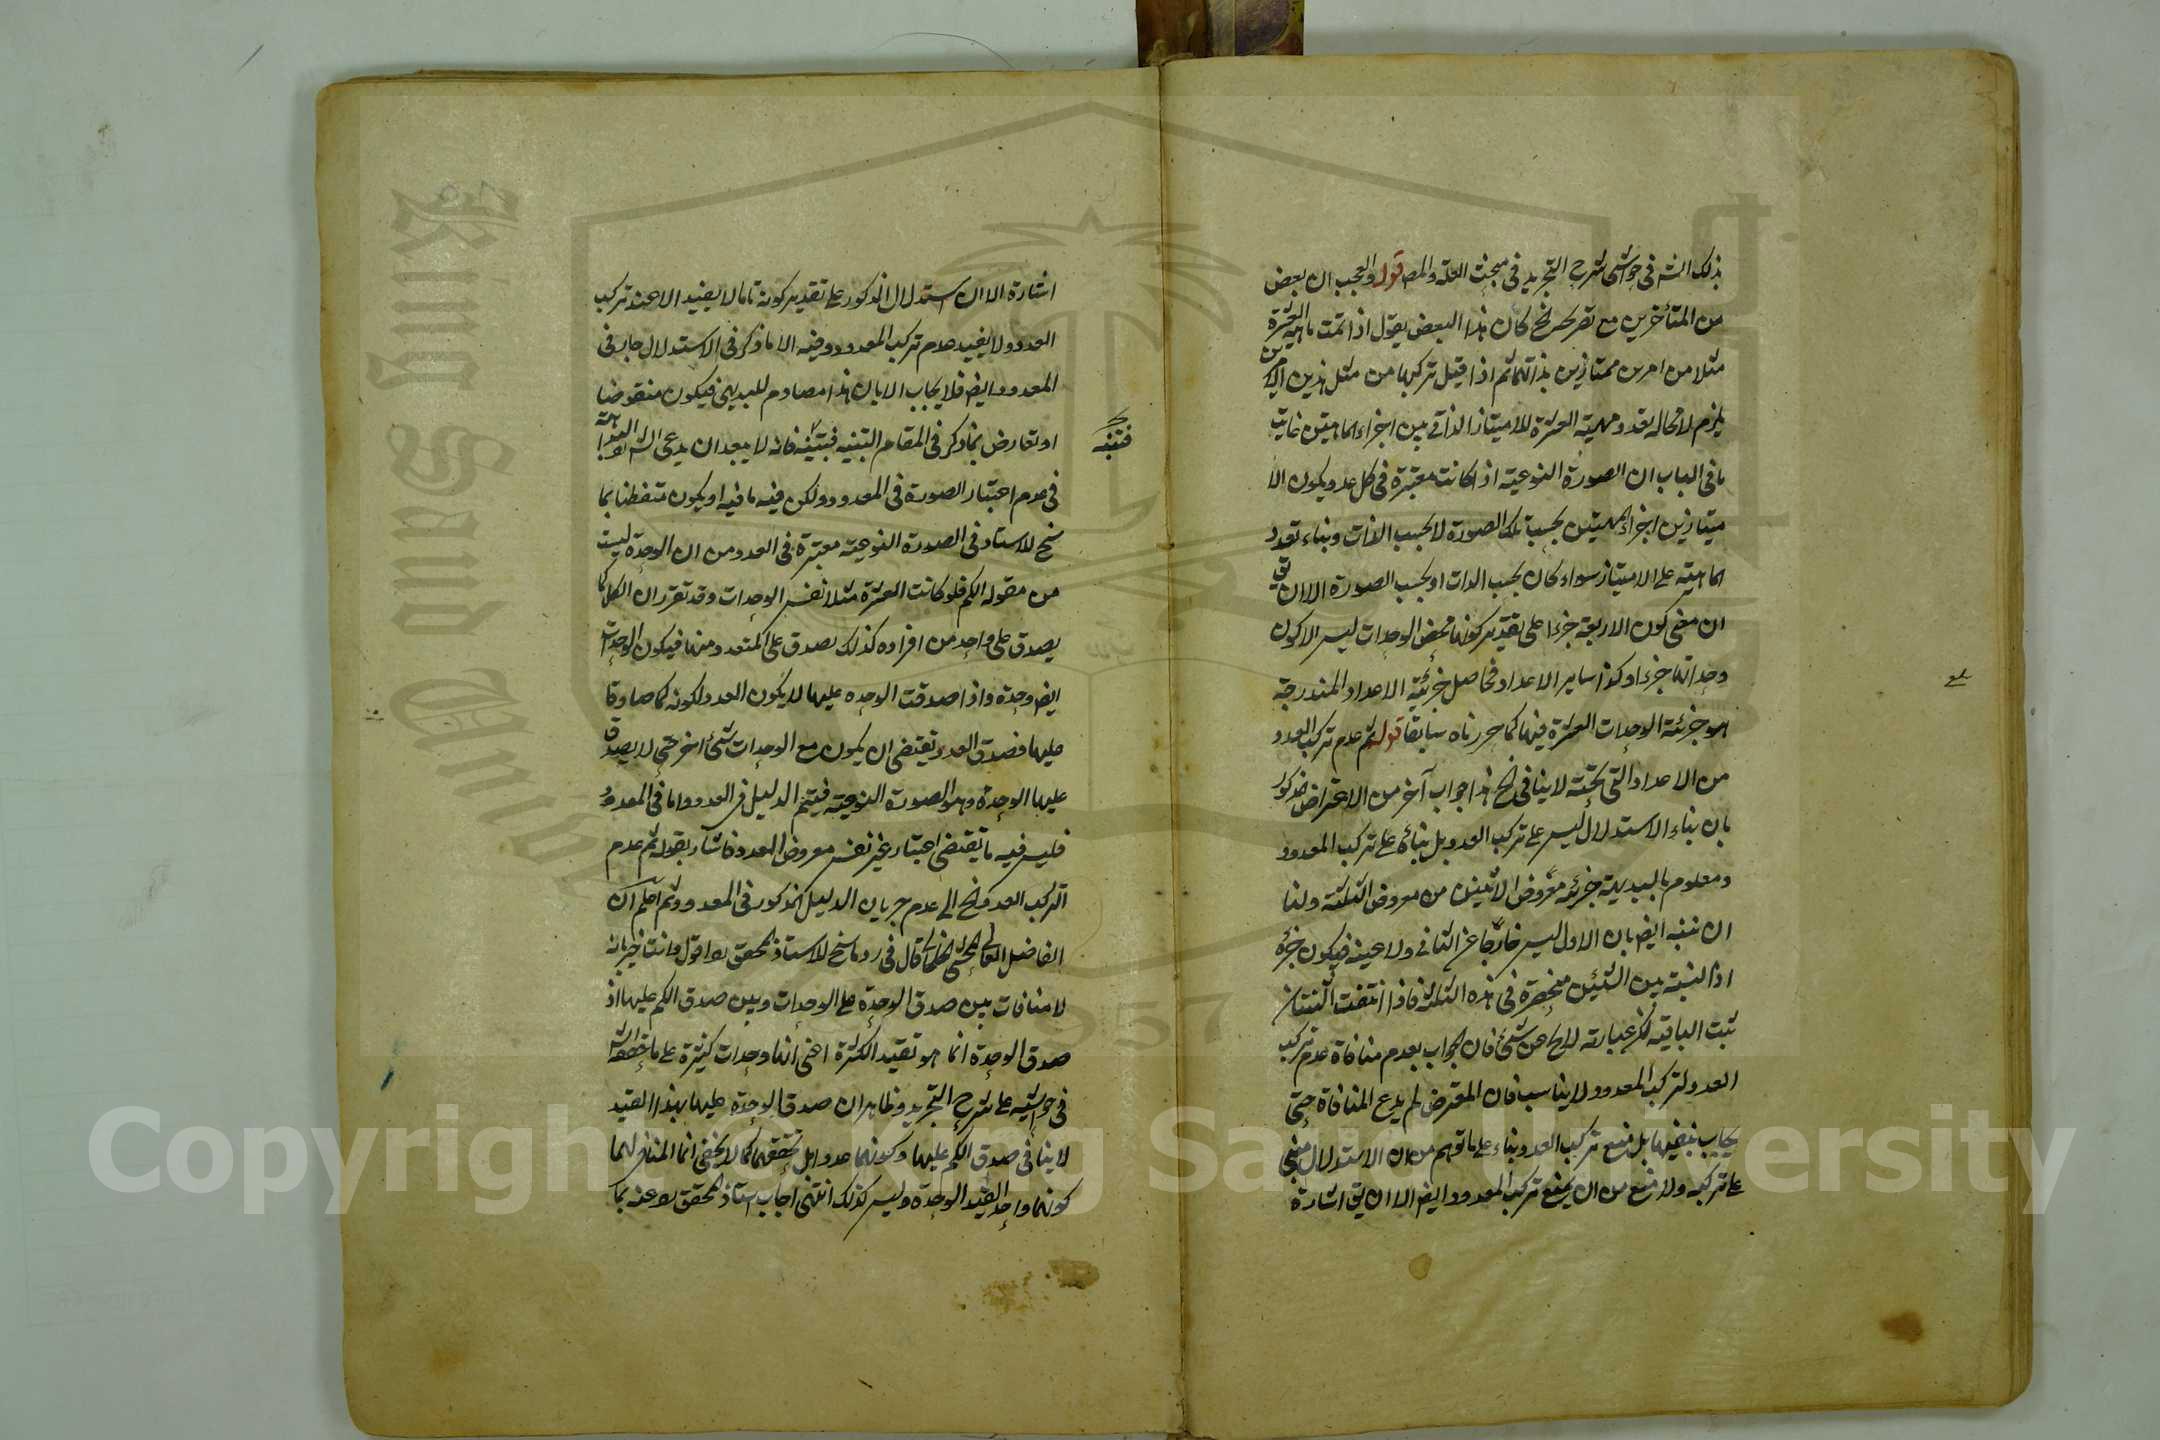 بذلك الش في حواشي شرح التجريد في مبحث العلة والمص قوله والعجب ان بعض
من المتأخرين مع تصريحه الخ كان هذا البعض يقول اذا تمت ماهية العشرة
مثلا من امرين ممتازين بذاتهما ثم اذا قيل تركبها من مثل هذين الامرين
يلزم لا محالة تعدد مهية العشرة للامتياز الذاتي بين اجزاء الماهيتين غاية
ما في الباب ان الصورة النوعية اذا كانت معتبرة في كل عدد يكون الا
متياز بين اجزاء المهيتين بحسب تلك الصورة لا بحسب الذات وبناء تعدد
الماهية على الامتياز سواء كان بحسب الذات او بحسب الصورة الا ان يق
ان معنى كون الاربعة جزءا على تقدير كونها محض الوحدات ليس الا كون
وحداتها جزءا وكذا ساير الاعداد فحاصل جزئية الاعداد المندرجة
هو جزئية الوحدات العشرة فيها كما حررناه سابقا قوله ثم عدم تركب العدد
من الاعداد التي تحته لا ينافي الخ هذا جواب آخر من الاعتراض المذكور
بان بناء الاستدلال ليس على تركب العدد بل بنائه على تركب المعدود
ومعلوم بالبديهة جزئية معروض الاثنين من معروض الثلثة ولنا
ان ننبه ايض بان الاول ليس خارجا عن الثاني ولا عينه فيكون جزءه
اذ النسبة بين الشيئين منحصرة في هذه الثلثة فاذا انتفت الثنتان
ثبت الباقية لكن عبارته لا يخ عن شئ فان الجواب بعدم منافاة عدم تركب
العدد لتركب المعدود لا يناسب فان المعترض لم يدع المنافاة حتى
يجاب بنفيها بل منع تركب العدد بناء على ما توهم من ان الاستدلال مبني
على تركبه ولا منع من ان يمنع تركب المعدود ايض الا ان يق اشارة
اشارة الا ان استدلال المذكور على تقدير كونه تاما لا يفيد الا عند تركب
العدد ولا يفيد عدم تركب المعدود وفيه الا ما ذكر في الاستدلال جار في
المعدود ايض فلا يجاب الا بان هذا مصادم للبديهي فيكون منقوضا
او تعارض بما ذكر في المقام التنبيه فتنبه فانه لا يبعد ان يدعى الش البداهة
في عدم اعتبار الصورة في المعدود ولكن فيه ما فيه او يكون متفطنا بما
سنح للاستاد في الصورة النوعية معتبرة في العدد من ان الوحدة ليست
من مقولة الكم فلو كانت العشرة مثلا نفس الوحدات وقد تقرر ان الكل كما
يصدق على واحد من افراده كذلك يصدق على المتعدد منها فيكون الوحدات
ايض وحدة واذا صدقت الوحده عليها لا يكون العدد لكونه كما صادقا
عليها فصدق العدد يقتضي ان يكون مع الوحدات شئ اخر حتى لا يصدق
عليها الوحدة وهو الصورة النوعية فيتم الدليل في العدد واما في المعدود
فليس فيه ما يقتضي اعتبار غير نفس معروض العدد فاشار بقوله ثم عدم
التركب العدد الخ الى عدم جريان الدليل المذكور في المعدود ثم اعلم ان
الفاضل المحشي قال في رد ما سنح للاستاذ المحقق اقول وانت خبير بانه
لا منافات بين صدق الوحدة على الوحدات وبين صدق الكم عليها اذ
صدق الوحدة انما هو تقيد الكثرة اعني انها وحدات كثيرة على ما حققه الش
في حواشيه على شرح التجريد وظاهر ان صدق الوحدة عليها بهذا القيد
لا ينافي صدق الكم عليها وكونها عددا بل تحققهما كما لا يخفى انما المنافي لهما
كونها واحد القيد الوحدة وليس كذلك انتهى اجاب استاذ المحقق عنه بما
فتنبه